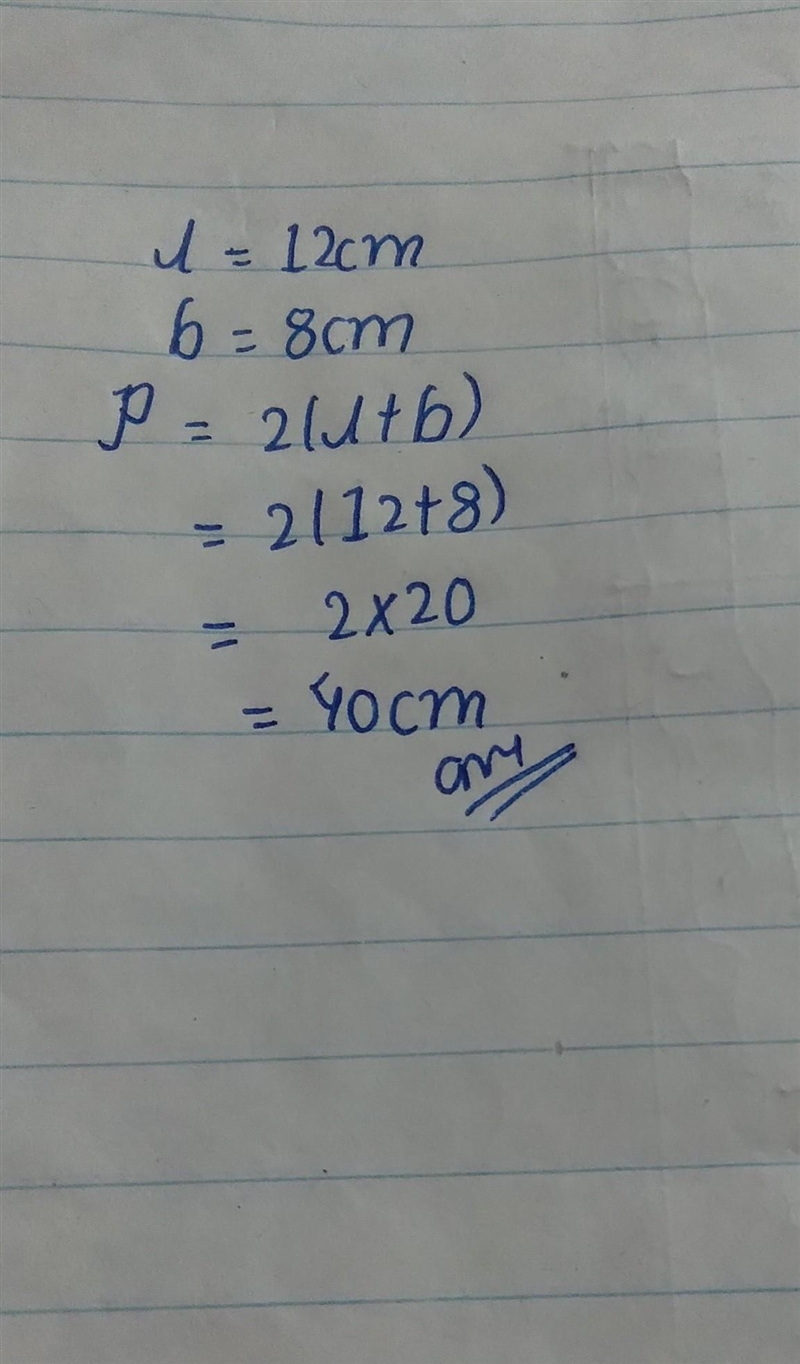 l = 12cm
b = 8cm
P = 2(l+b)
= 2(12+8)
= 2×20
= 40cm
ans